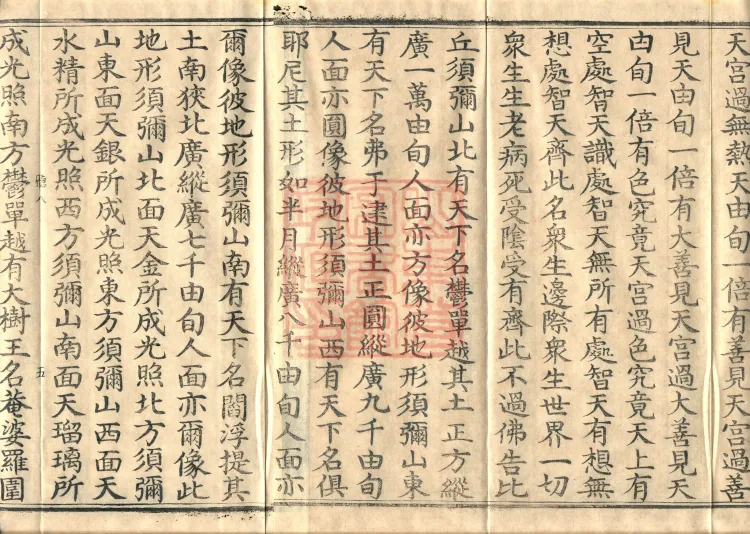 天宮過無熱天由旬一倍有善見天宮過善
見天由旬一倍有大善見天宮過大善見天
由旬一倍有色究竟天宮過色究竟天上有
空處智天識處智天無所有處智天有想無
想處智天齊此名衆生邊際衆生世界一切
衆生生老病死受陰受有齊此不過佛告比
丘須彌山北有天下名鬱單越其土正方縱
廣一萬由旬人面亦方像彼地形須彌山東
有天下名弗于逮其土正圓縱廣九千由旬
人面亦圓像彼地形須彌山西有天下名俱
耶尼其土形如半月縱廣八千由旬人面亦
爾像彼地形須彌山南有天下名閻浮提其
土南狹北廣縱廣七千由旬人面亦爾像此
地形須彌山北面天金所成光照北方須彌
山東面天銀所成光照東方須彌山西面天
水精所成光照西方須彌山南面天瑠璃所
五
成光照南方鬱單越有大樹王名菴婆羅圍